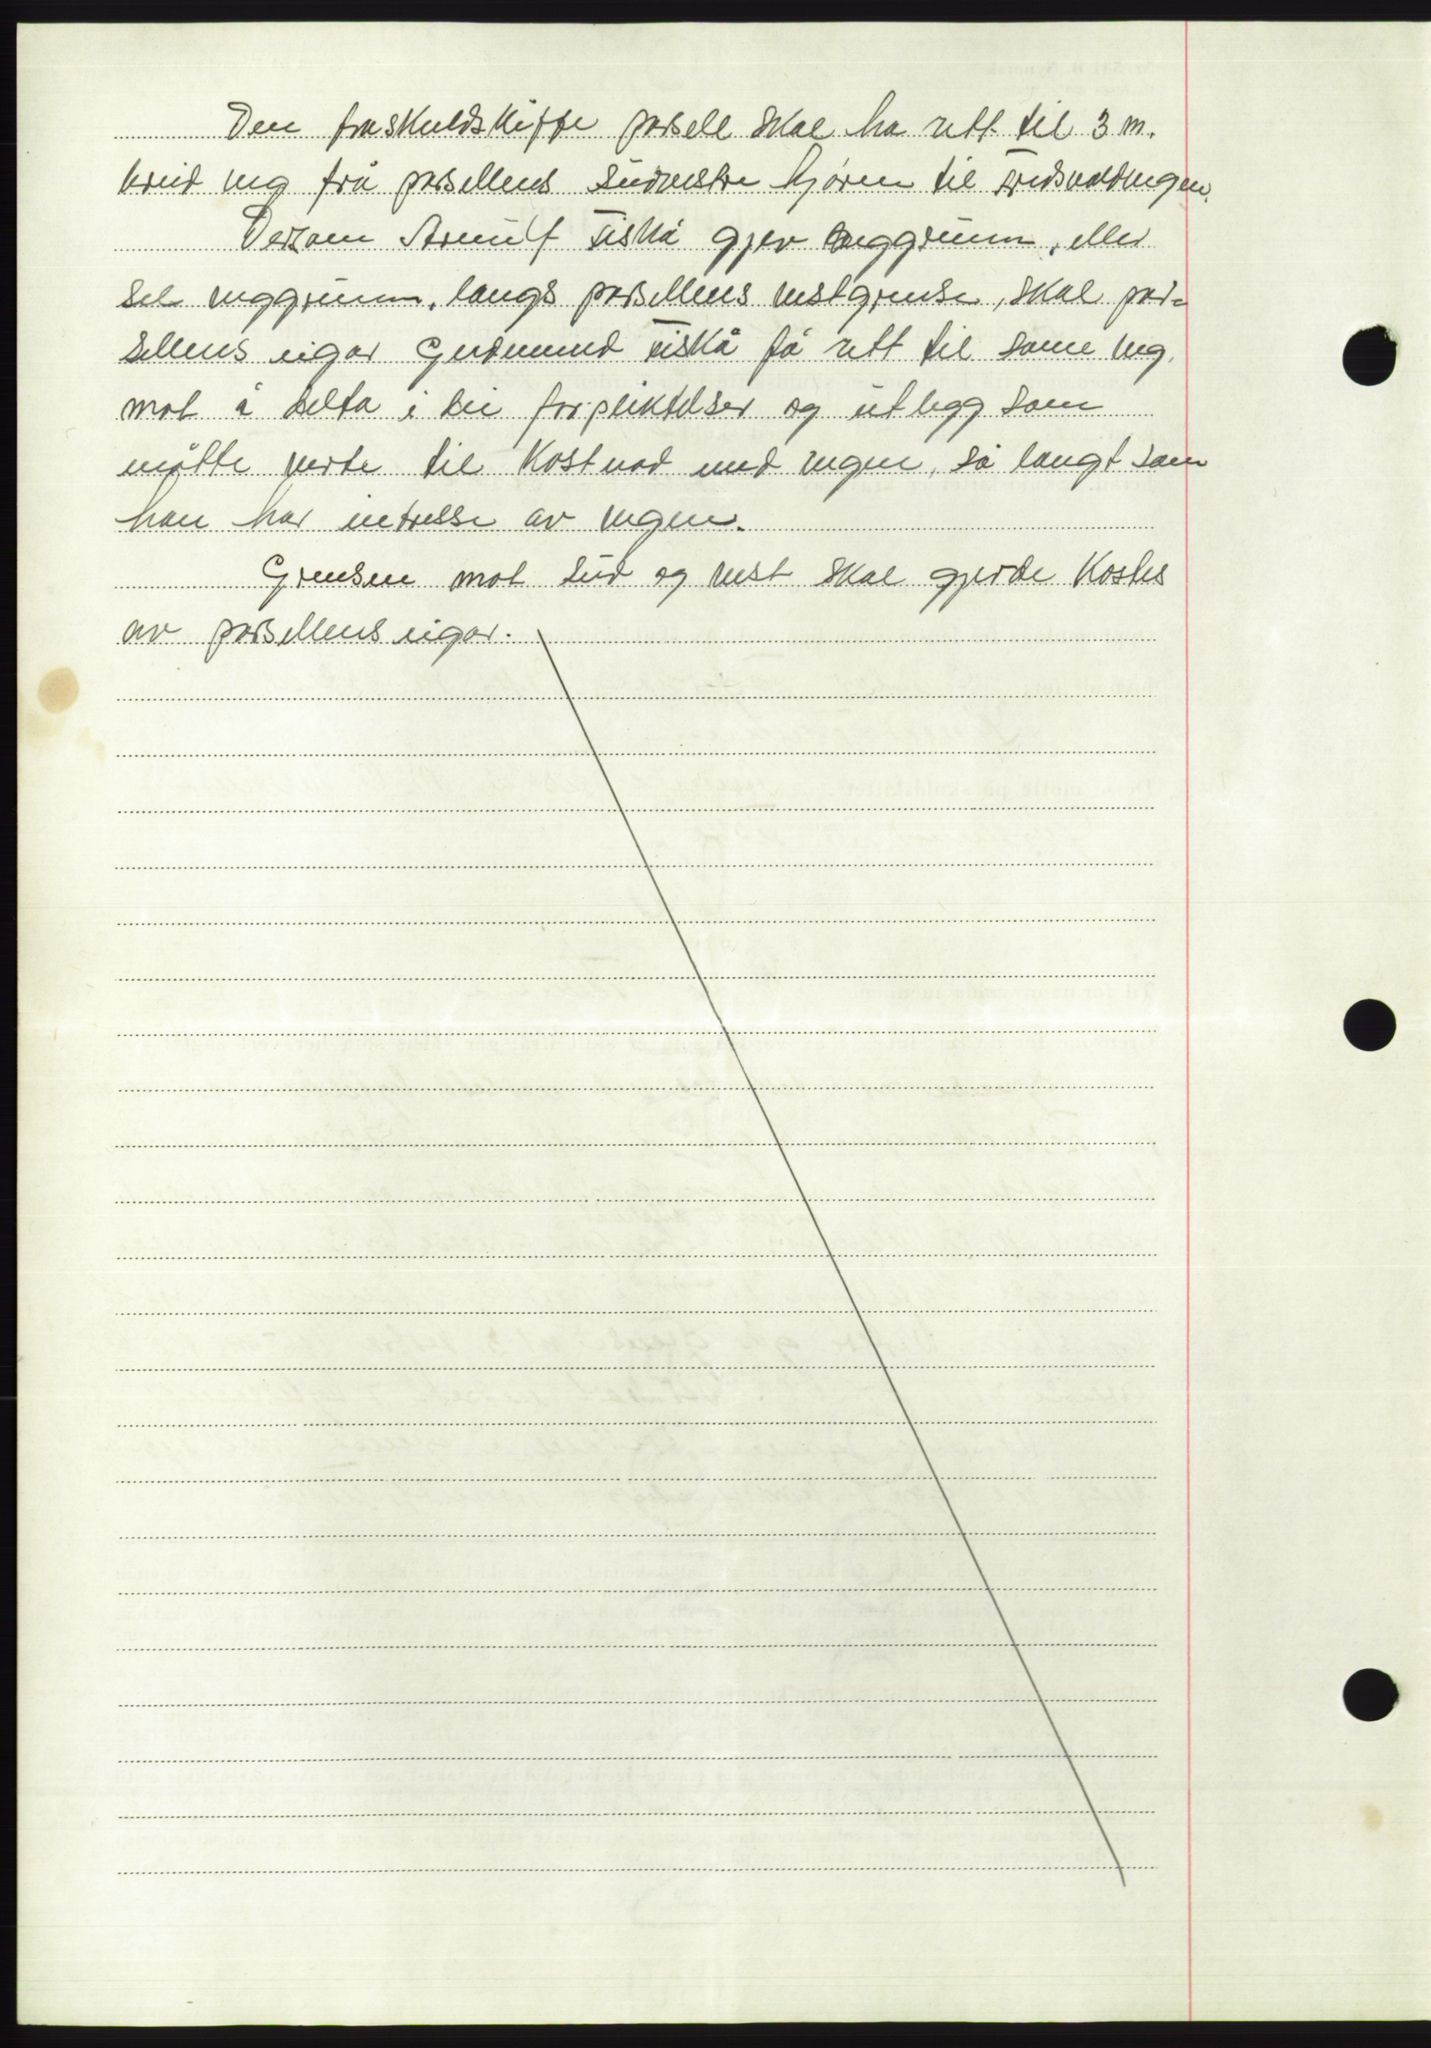 Den fraskuldskifte parsell skal ha rett til 3 m.
breid veg frå parsellens südvestre hjörne til Fredsvollvegen.
Dersom Arnulf Fiskå gjev veggrunn, eller
sel veggrunn, langs parsellens vestgrense, skal par-
sellens eigar Gudmund Fiskå få rett til same veg,
mot å delta i dei forpliktelser og utlegg som
måtte verte til kostnad med vegen, så langt som
han har intresse av vegen.
Grensen mot süd og vest skal gjerde kostes
av parsellens eigar.